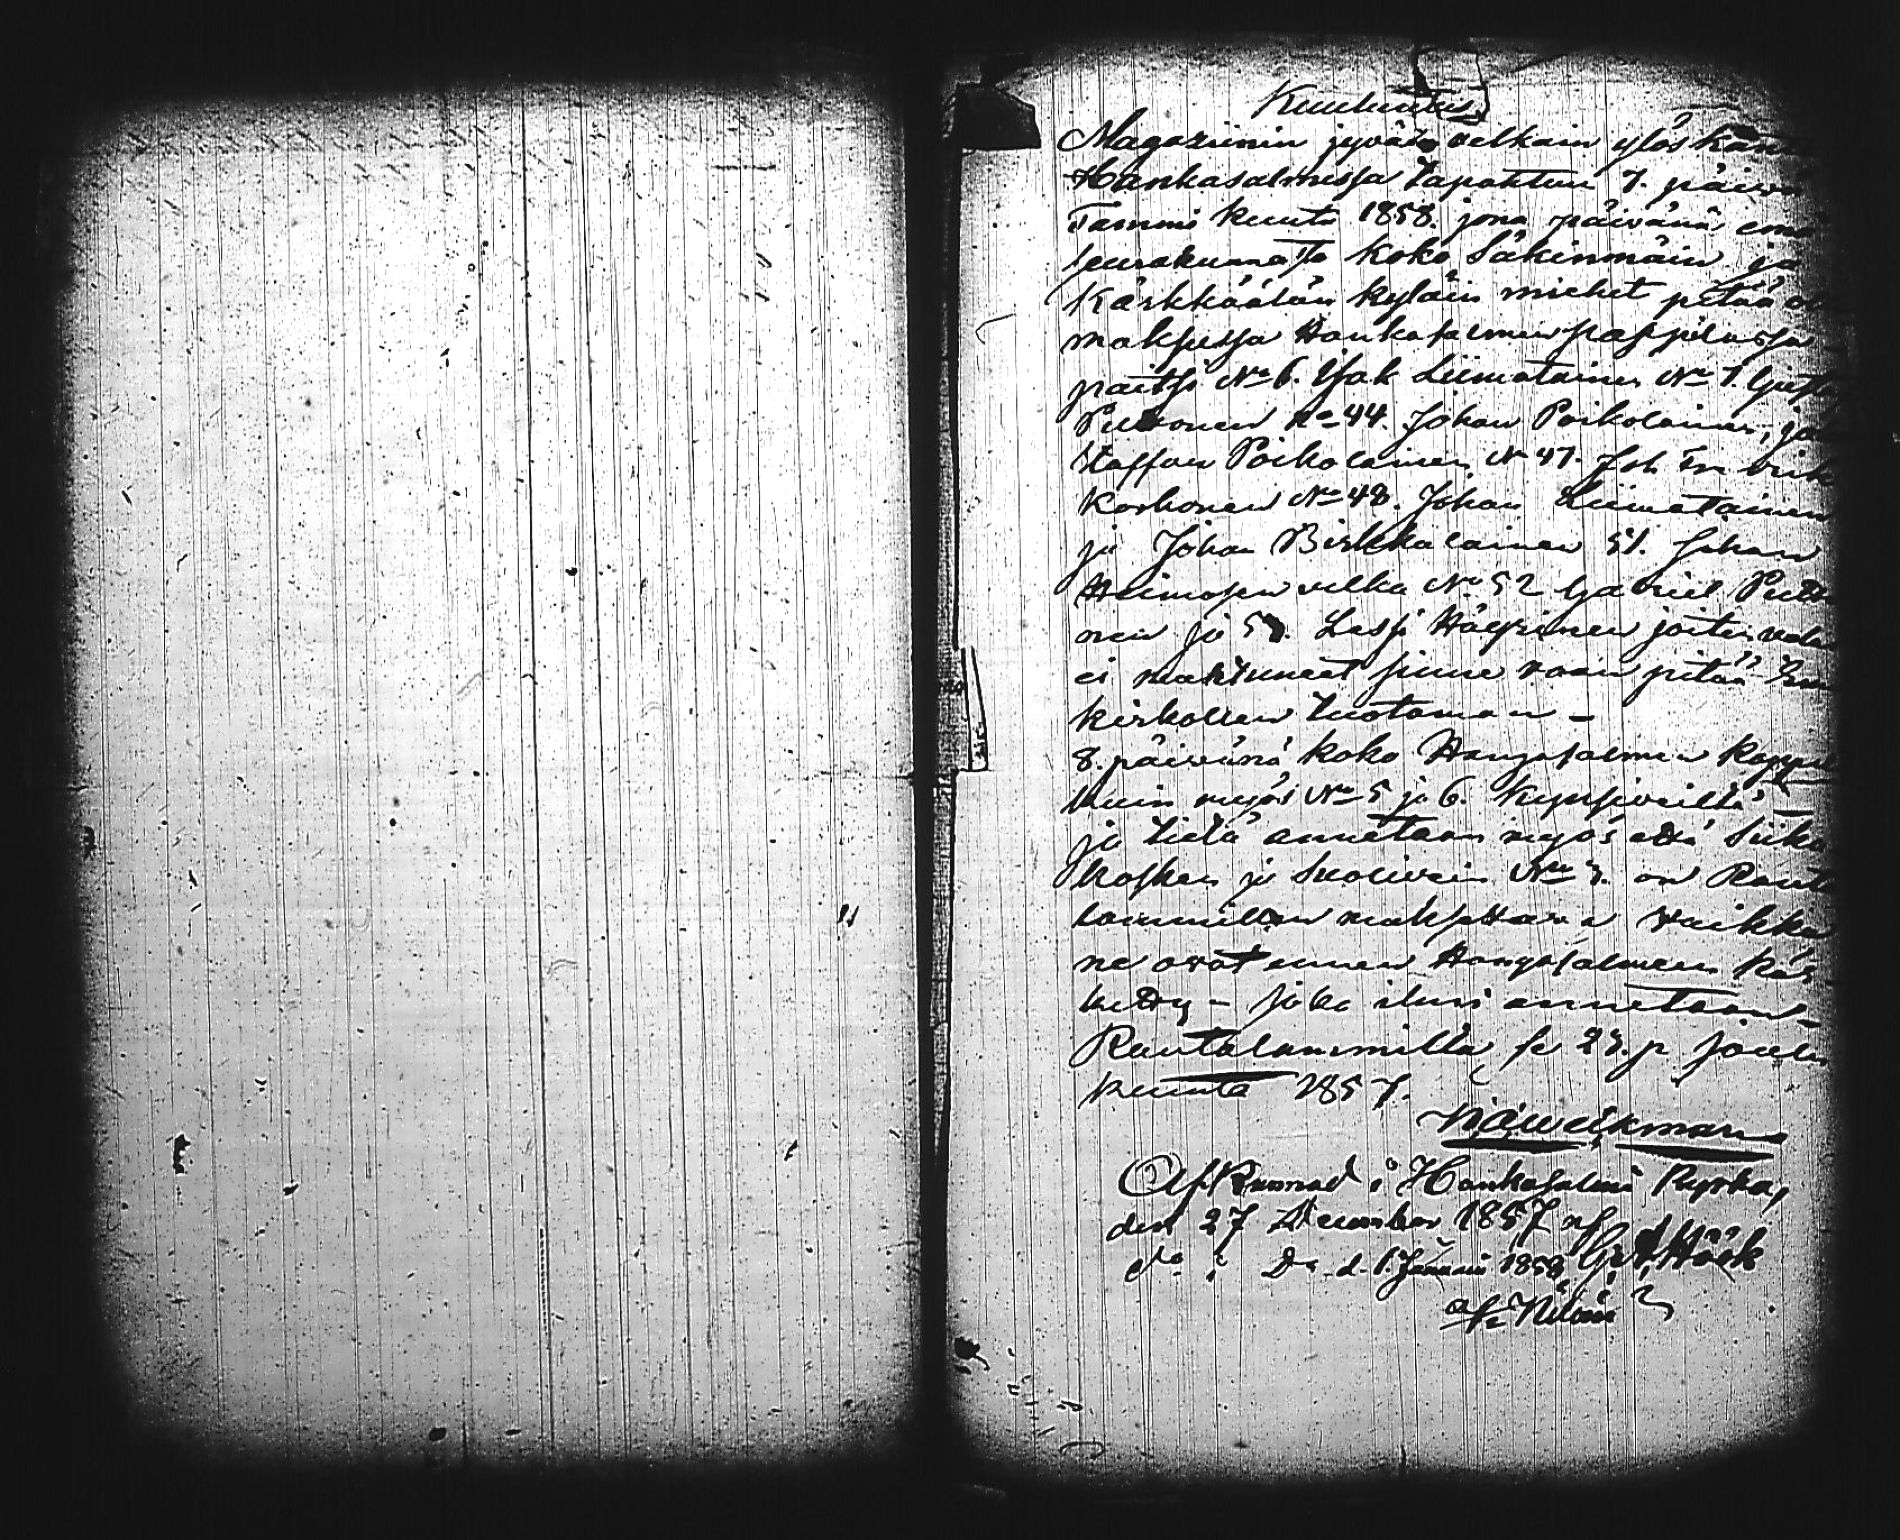 Kuulutus
Magaziinin jyvä velkain ylös kan
Hankasalmessa tapahtuu 7. päivä
Tammi kuuta 1858. jona päivänä emä
seurakunnasta koko Säkinmäin ja
Kärkkäälän kyläin miehet pitää
maksussa Hankasalmen pappilassa
paitsi No 6. Isak Liimatainen No 7.
Puttonen No 44. Johan Poikolainen, ja
Staffan Poikolainen No 47. Joh
Korhonen No 48. Johan Liimatainen
ja Johan Pirkkalainen 51. Johan
Heimosen velka No 52 Gabriel Putto
nen ja Lassi Häyrinen joiten
ei maksuneet sinne vaan pitää Emä
kirkollen tuotaman -
8. päivänä koko Hangasalmen Kappe
kuin myös No 5 ja 6. Kynsiveildä -
ja tietä annetaan myös että Siika
kosken ja No 3. on Rauta
lammillen maksettava vaikka
ne ovat ennen Hangasalmeen käs
ketty - joka ilmi annetaan -
Rautalammilla se 23. p Joulu
kuuta 1857.
Afkunnad i Hankasalmi Kyrka,
den 27 December 1857 af
do i Do d. 1. Januari 1858 Höök
af